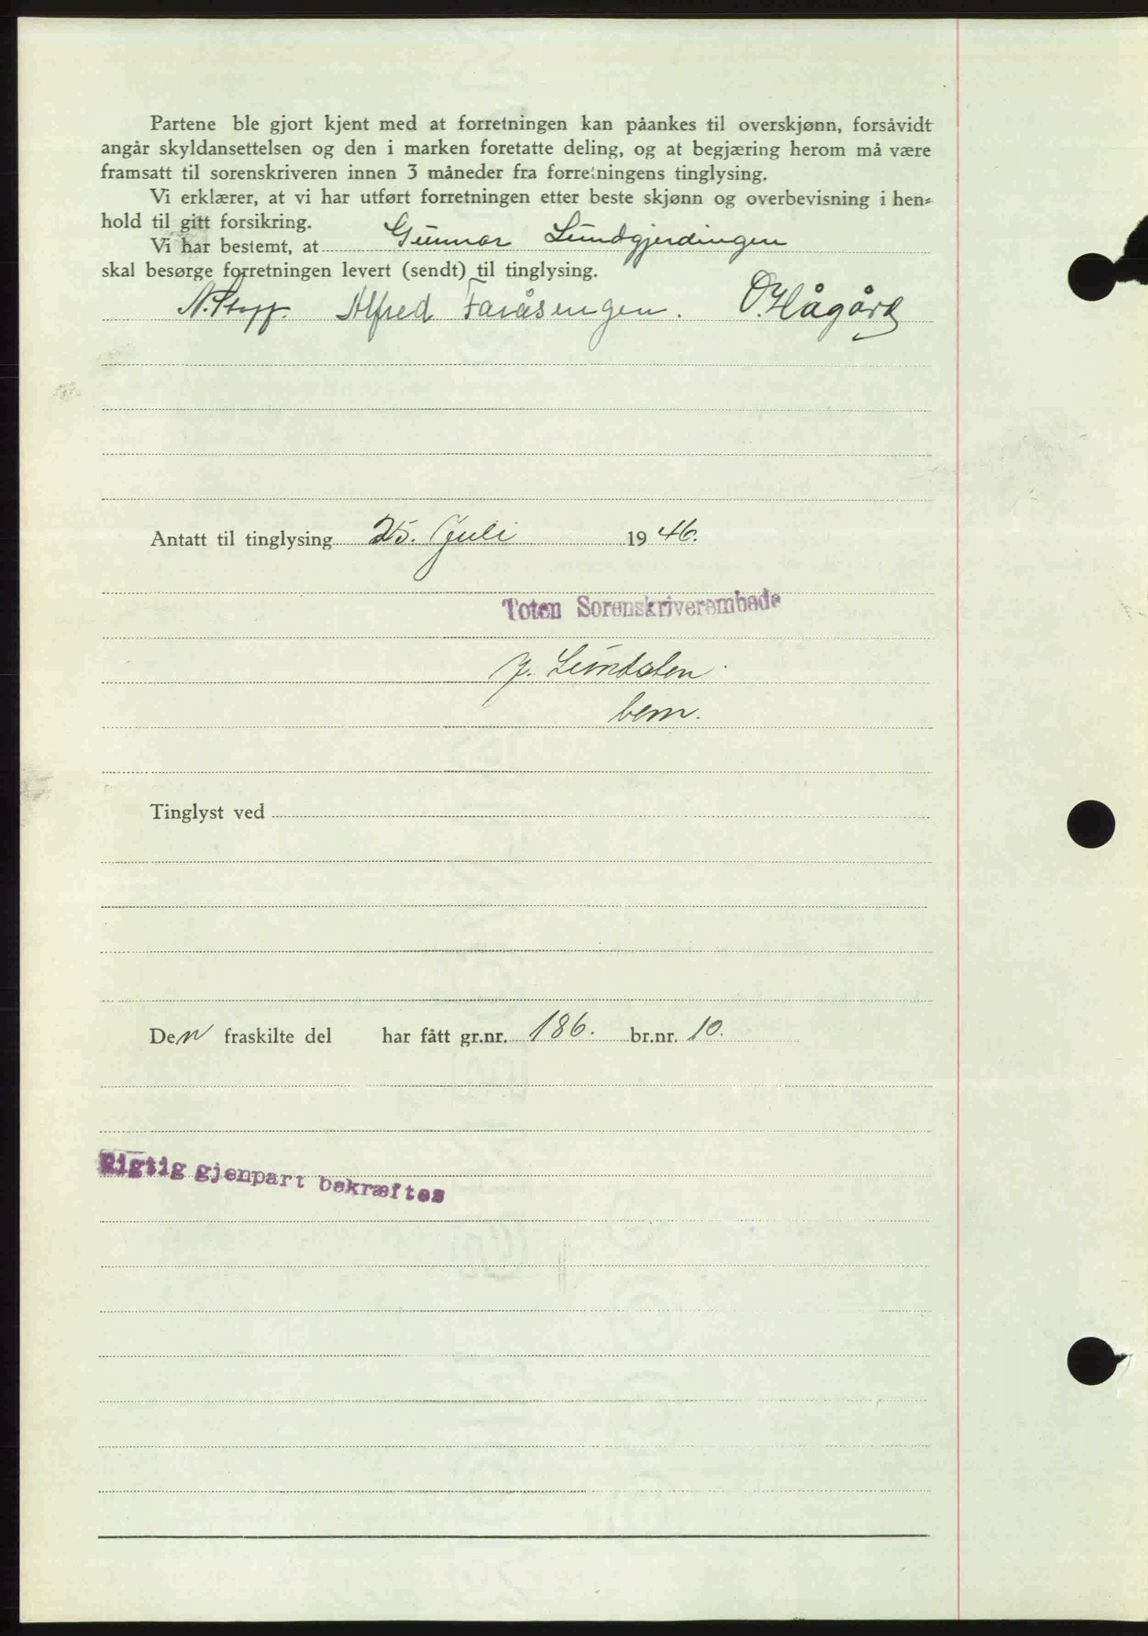 Partene ble gjort kjent med at forretningen kan påankes til overskjønn, forsåvidt
angår skyldansettelsen og den i marken foretatte deling, og at begjæring herom må være
framsatt til sorenskriveren innen 3 måneder fra forretningens tinglysing.
Vi erklærer, at vi har utført forretningen etter beste skjønn og overbevisning i hen-
hold til gitt forsikring.
Vi har bestemt, at Gunnar Lundgjerdingen
skal besørge forretningen levert (sendt) til tinglysing.
Alfred Faråsengen. O. Hågård
Antatt til tinglysing 25. Juli 1946.
Toten Sorenskriverembede
J. Lundalen
bem.
Tinglyst ved
Den fraskilte del har fått gr.nr. 186. br.nr. 10.
Rigtig gjenpart bekræftes